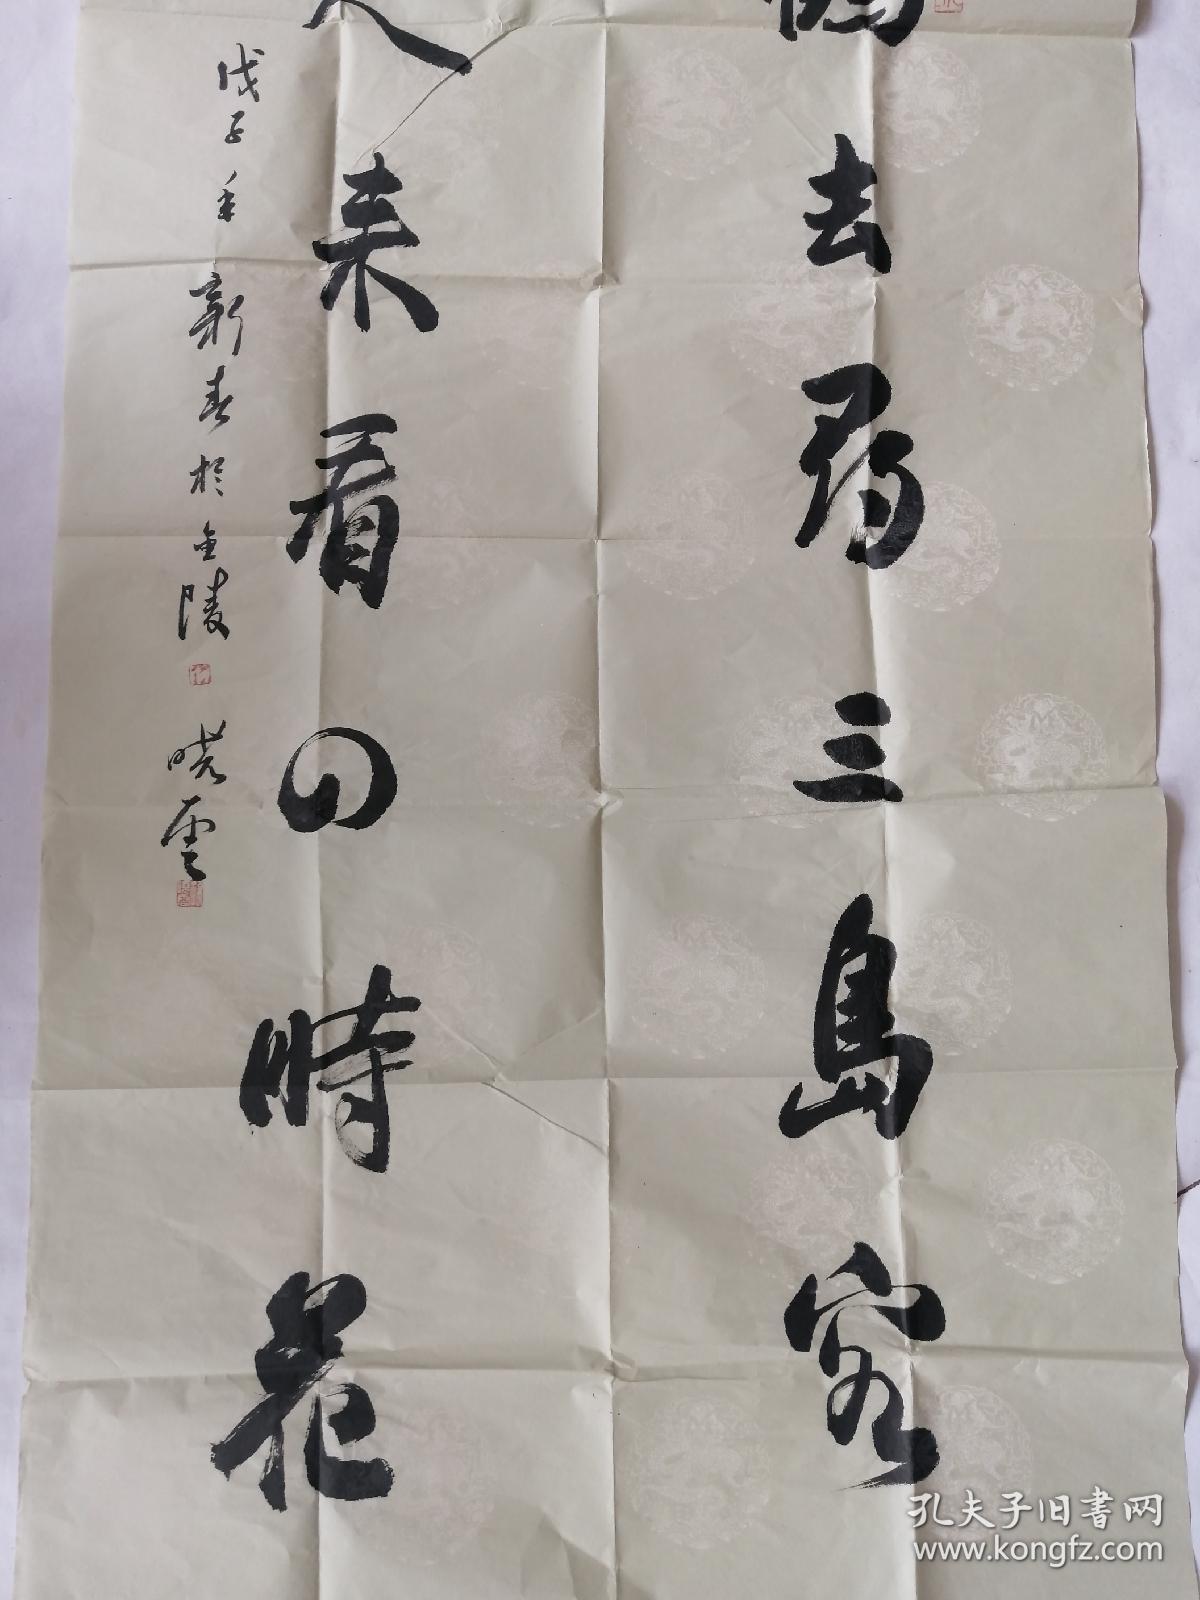 鶴去尋三島客
人來看四時花
戊子年新春於金陵 曉雲
孔夫子旧书网
www.kongfz.com